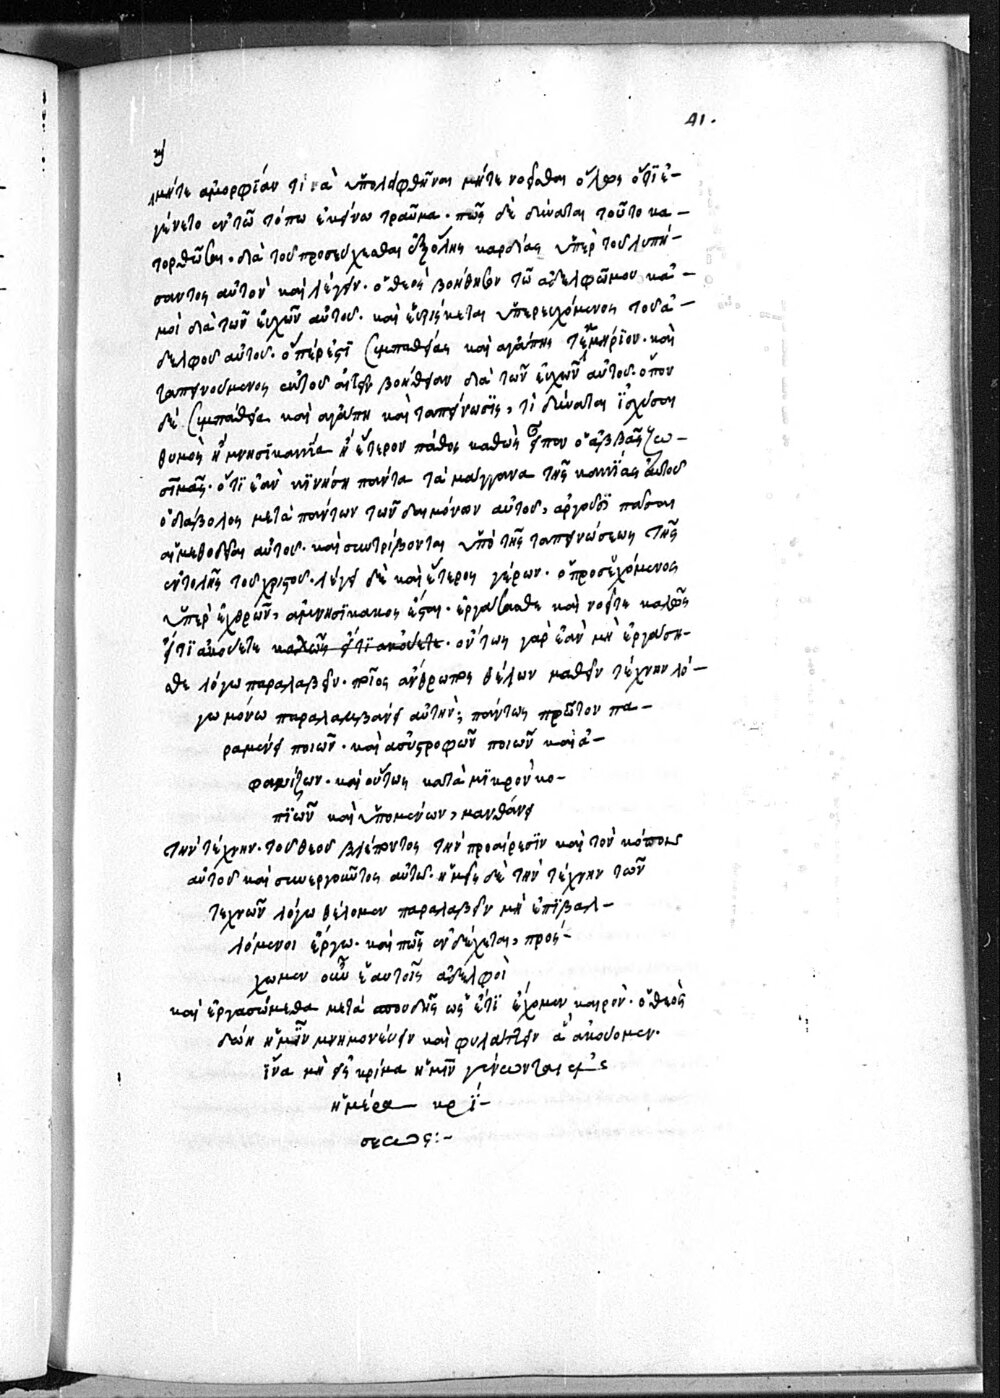 41.
μήτε ἀμορφίαν τινὰ ὑπολειφθῆναι μήτε νοεῖσθαι ὅλως ὅτι ἐ-
γένετο ἐν τῶ τόπω ἐκείνω τραῦμα· πῶς δὲ δύναται τοῦτο κα-
τορθῶσαι· διὰ τοῦ προσεύχεσθαι ἐξ ὅλης καρδίας ὑπὲρ τοῦ λυπή-
σαντος αὐτὸν καὶ λέγειν· ὁ θεὸς βοήθησον τῶ ἀδελφῶ μου κἀ-
μοὶ διὰ τῶν εὐχῶν αὐτοῦ· καὶ εὑρίσκεται ὑπερευχόμενος τοῦ ἀ-
δελφοῦ αὐτοῦ· ὅπέρ ἐστι συμπαθείας καὶ ἀγάπης τεκμήριον· καὶ
ταπεινούμενος αὐτοῦ αἰτεῖν βοήθειαν διὰ τῶν εὐχῶν αὐτοῦ· ὅπου
δὲ συμπάθεια καὶ ἀγάπη καὶ ταπείνωσις, τί δύναται ἰσχύσαι
θυμὸς ἢ μνησικακία ἢ ἕτερον πάθος καθὼς εἶπεν ὁ ἀββᾶς ζω-
σιμᾶς· ὅτι ἐὰν κινήση πάντα τὰ μάγγανα τῆς κακίας αὐτοῦ
ὁ διάβολος μετὰ πάντων τῶν δαιμόνων αὐτοῦ, ἀργοῦσι πᾶσαι
αἱ μεθοδεῖαι αὐτοῦ· καὶ συντρίβονται ὑπὸ τῆς ταπεινώσεως τῆς
ἐντολῆς τοῦ χριστοῦ· λέγει δὲ καὶ ἕτερος γέρων· ὁ προσευχόμενος
ὑπὲρ ἐχθρῶν, ἀμνησίκακος ἔσται· ἐργάσασθε καὶ νοεῖτε καλῶς
εἴ τι ἀκούετε καλῶς εἴ τι ἀκούετε· ὄντως γὰρ ἐὰν μὴ ἐργάση-
σθε λόγω παραλαβεῖν· ποῖος ἄνθρωπος θέλων μαθεῖν τέχνην λό-
γω μόνω παραλαμβάνει αὐτήν; πάντως πρῶτον πα-
ραμένει ποιῶν· καὶ ἀσυστροφῶν ποιῶν καὶ ἀ-
φανίζων· καὶ οὕτως κατὰ μικρὸν κο-
πιῶν καὶ ὑπομένων, μανθάνει
τὴν τέχνην· τοῦ θεοῦ βλέποντος τὴν προαίρεσιν καὶ τὸν κόπον
αὐτοῦ καὶ συνεργοῦντος αὐτῶ· ἡμεῖς δὲ τὴν τέχνην τῶν
τεχνῶν λόγω θέλομεν παραλαβεῖν μὴ ἐπιβαλ-
λόμενοι ἔργω· καὶ πῶς ἐνδέχεται, προσέ-
χωμεν οὖν ἑαυτοῖς ἀδελφοὶ
καὶ ἐργασώμεθα μετὰ σπουδῆς ὡς ἔτι ἔχομεν καιρὸν· ὁ θεὸς
δώη ἡμῖν μνημονεύειν καὶ φυλάττειν ἃ ἀκούομεν·
ἵνα μὴ εἰς κρίμα ἡμῖν γένωνται ἐν
ἡμέρα κρί-
σεως:-